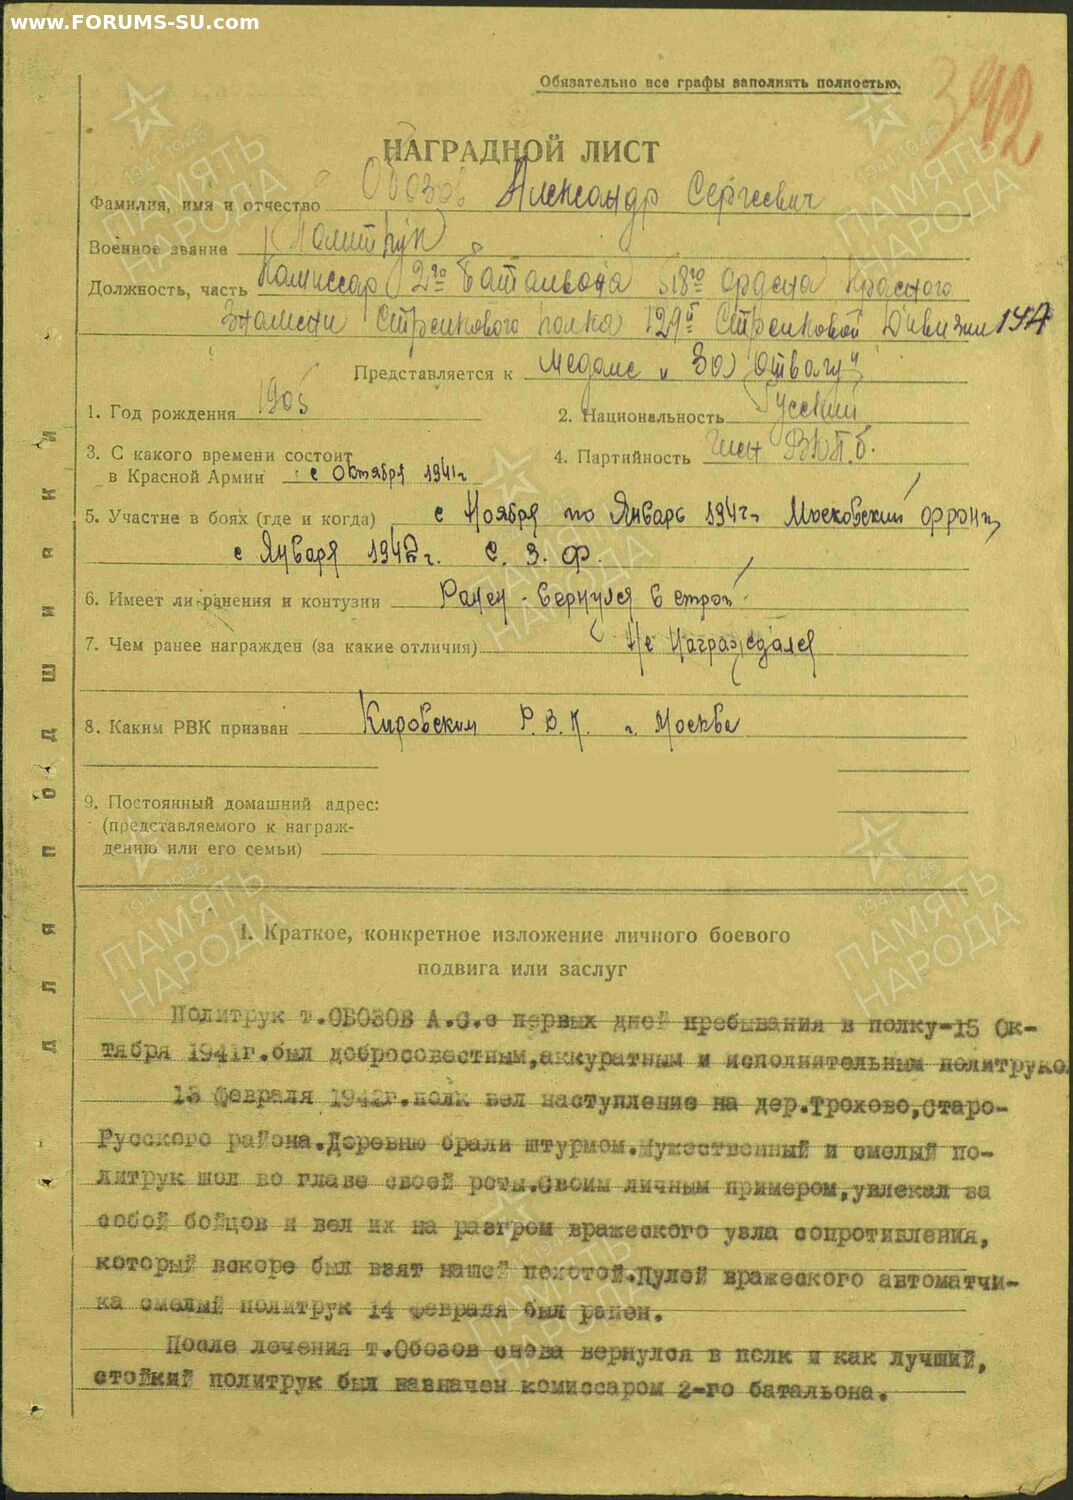 www.FORUMS-SU.com
Обязательно все графы заполнять полностью.
392
НАГРАДНОЙ ЛИСТ
Фамилия, имя и отчество Обозов Александр Сергеевич
Военное звание Политрук
Должность, часть Комиссар 2го Батальона 518го ордена Красного
Знамени Стрелкового полка 129й Стрелковой Дивизии 1УА
Представляется к Медале "За Отвагу"
1. Год рождения 1905 2. Национальность Русский
3. С какого времени состоит
в Красной Армии с Октября 1941г 4. Партийность Член ВКП.б.
5. Участие в боях (где и когда) с Ноября по Январь 194 г. Московский фронт,
с Января 1942г. С. З. Ф.
6. Имеет ли ранения и контузии Ранен - вернулся в строй
7. Чем ранее награжден (за какие отличия) Не Награждался
8. Каким РВК призван Кировским Р.В.К. г. Москва
9. Постоянный домашний адрес:
(представляемого к награж-
дению или его семьи)
Для подшивки
1. Краткое, конкретное изложение личного боевого
подвига или заслуг
Политрук т.ОБОЗОВ А.С.с первых дней пребывания в полку-15 Ок-
тября 1941г.был добросовестным,аккуратным и исполнительным политруко
13 февраля 1942г.полк вел наступление на дер.Трохово,Старо-
Русского района.Деревню брали штурмом.Мужественный и смелый по-
литрук шол во главе своей роты.Своим личным примером,увлекал за
собой бойцов и вел их на разгром вражеского узла сопротивления,
который вскоре был взят нашей пехотой.Пулей вражеского автоматчи-
ка смелый политрук 14 февраля был ранен.
После лечения т.Обозов снова вернулся в полк и как лучший,
стойкий политрук был назначен комиссаром 2-го батальона.
ПАМЯТЬ НАРОДА
1941-1945